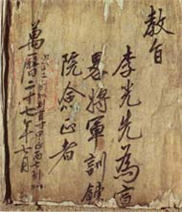 教旨
李光先為宣
畧將軍訓鍊
院僉正者
萬曆二十七年七月